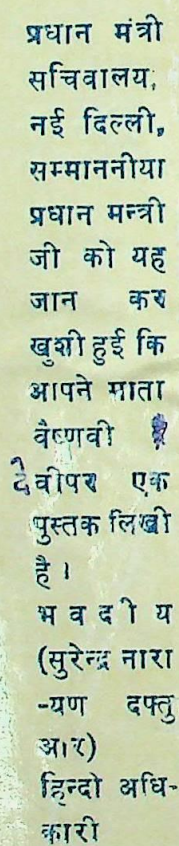 प्रधान मंत्री
सचिवालय,
नई दिल्ली,
सम्माननीया
प्रधान मन्त्री
जी को यह
जान कर
खुशी हुई कि
आपने माता
वैष्णवी
देवीपर एक
पुस्तक लिखी
है ।
भ व दी य
(सुरेन्द्र नारा
-यण दफ्तु
आर)
हिन्दो अधि-
कारी